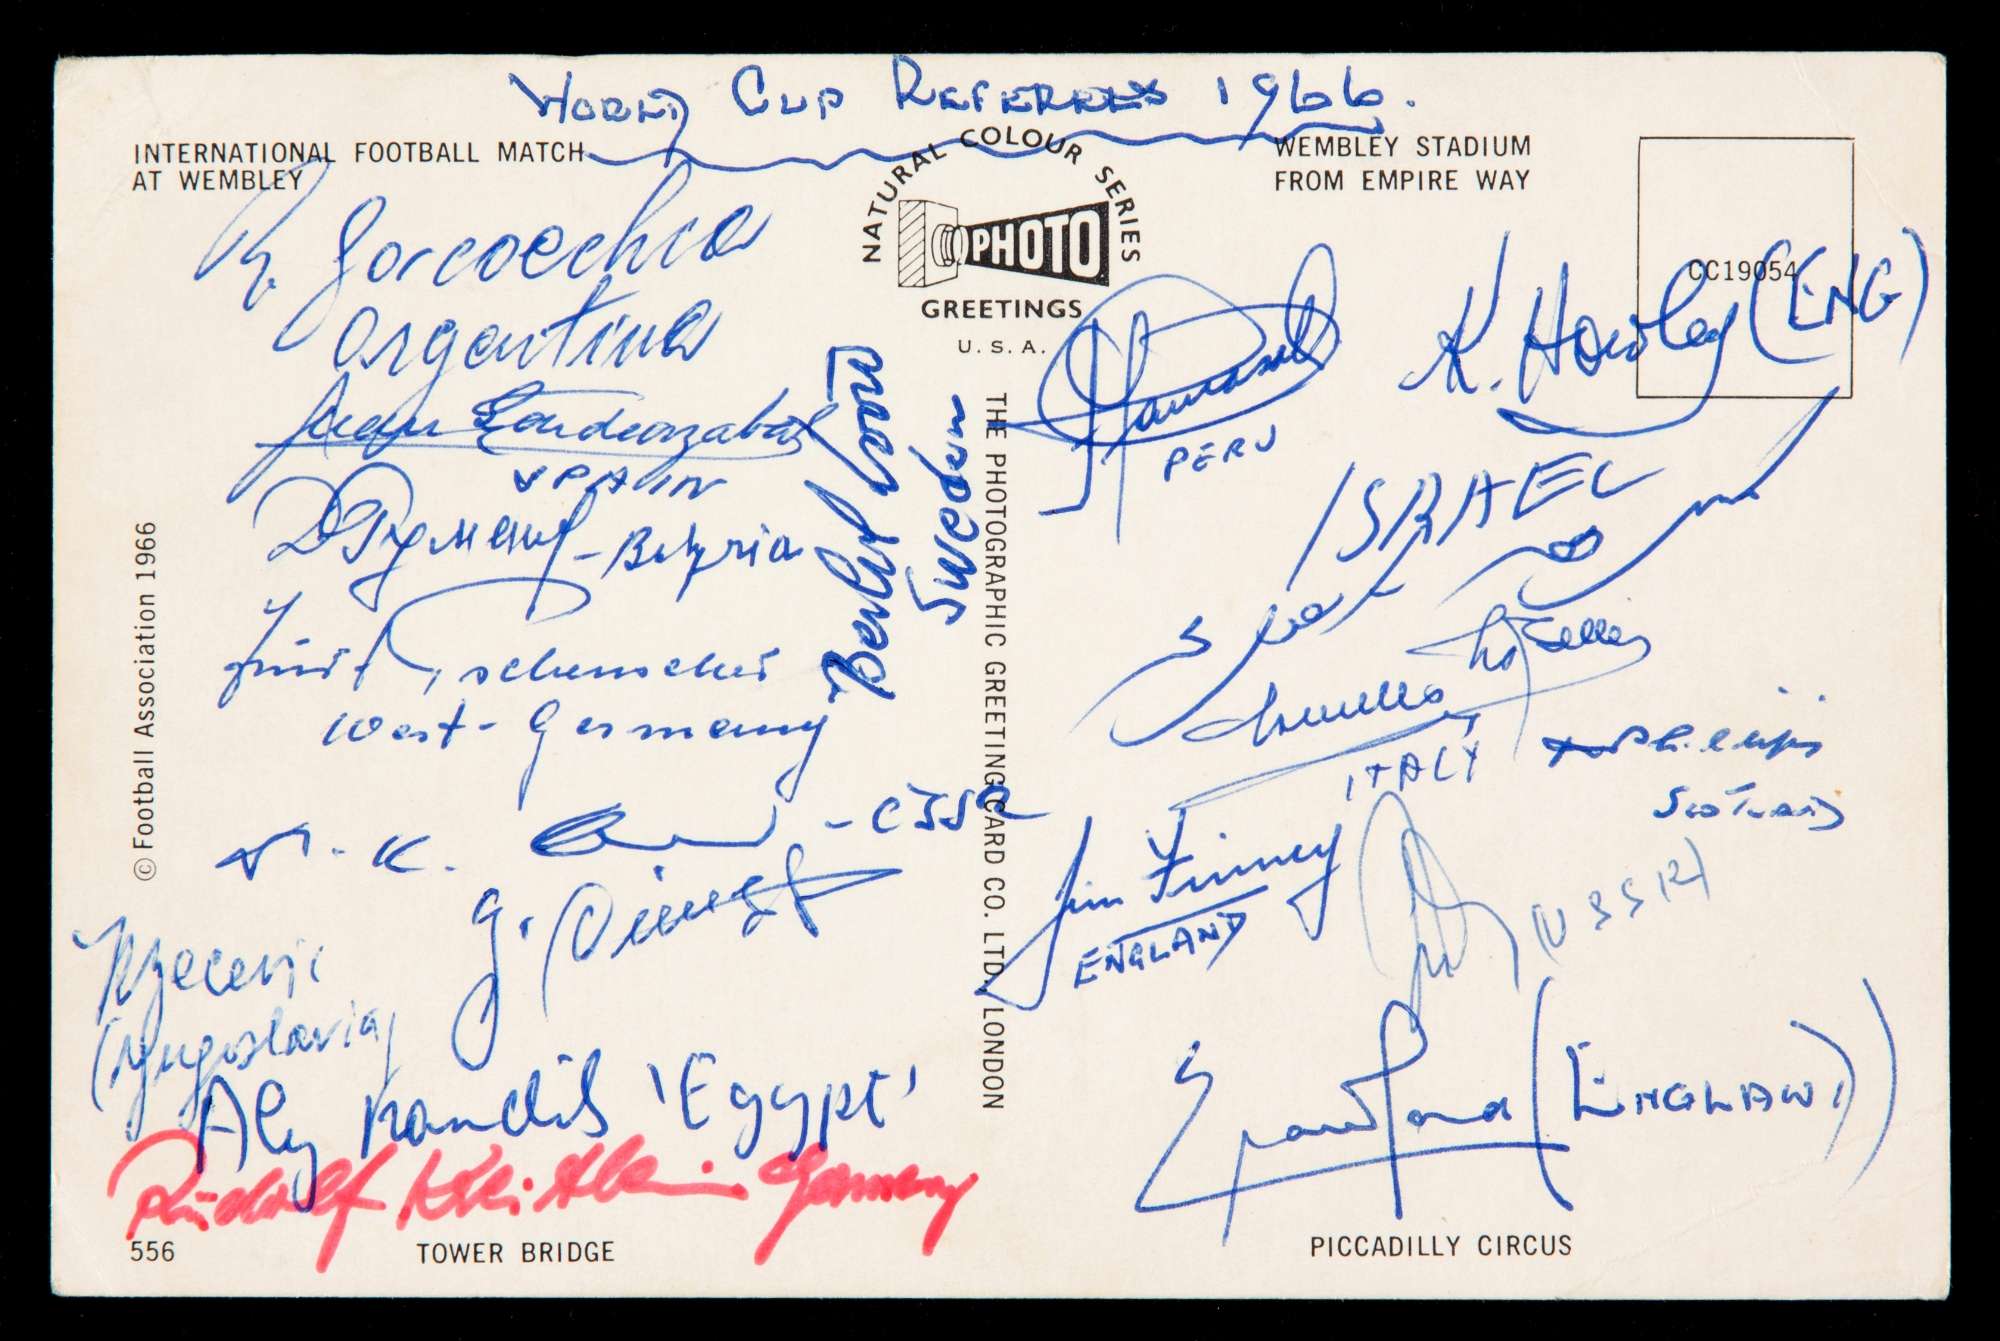 World Cup Referees 1966.
INTERNATIONAL FOOTBALL MATCH
AT WEMBLEY
NATURAL COLOUR SERIES
PHOTO
GREETINGS
U.S.A.
WEMBLEY STADIUM
FROM EMPIRE WAY
CC19054
R. Goicoechea
Argentina
Juan Gardeazabal
SPAIN
West-Germany
- CSSR
(Yugoslavia)
Aly Kandil 'Egypt'
Rudolf Kreitlein Germany
Bertil Lööw
Sweden
THE PHOTOGRAPHIC GREETING CARD CO. LTD. LONDON
© Football Association 1966
PERU
K. Howley (ENG)
ISRAEL
ITALY
Phillips
Scotland
Jim Finney
ENGLAND
(USSR)
Crawford (ENGLAND)
556
TOWER BRIDGE
PICCADILLY CIRCUS